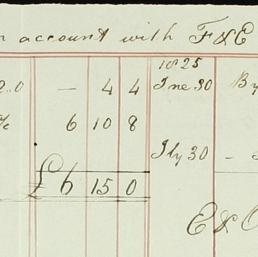 account with F&E
1825
2.0 — 4 4 Jne 30 By
% 6 10 8
Jly 30 -
£ 6 15 0
E&O